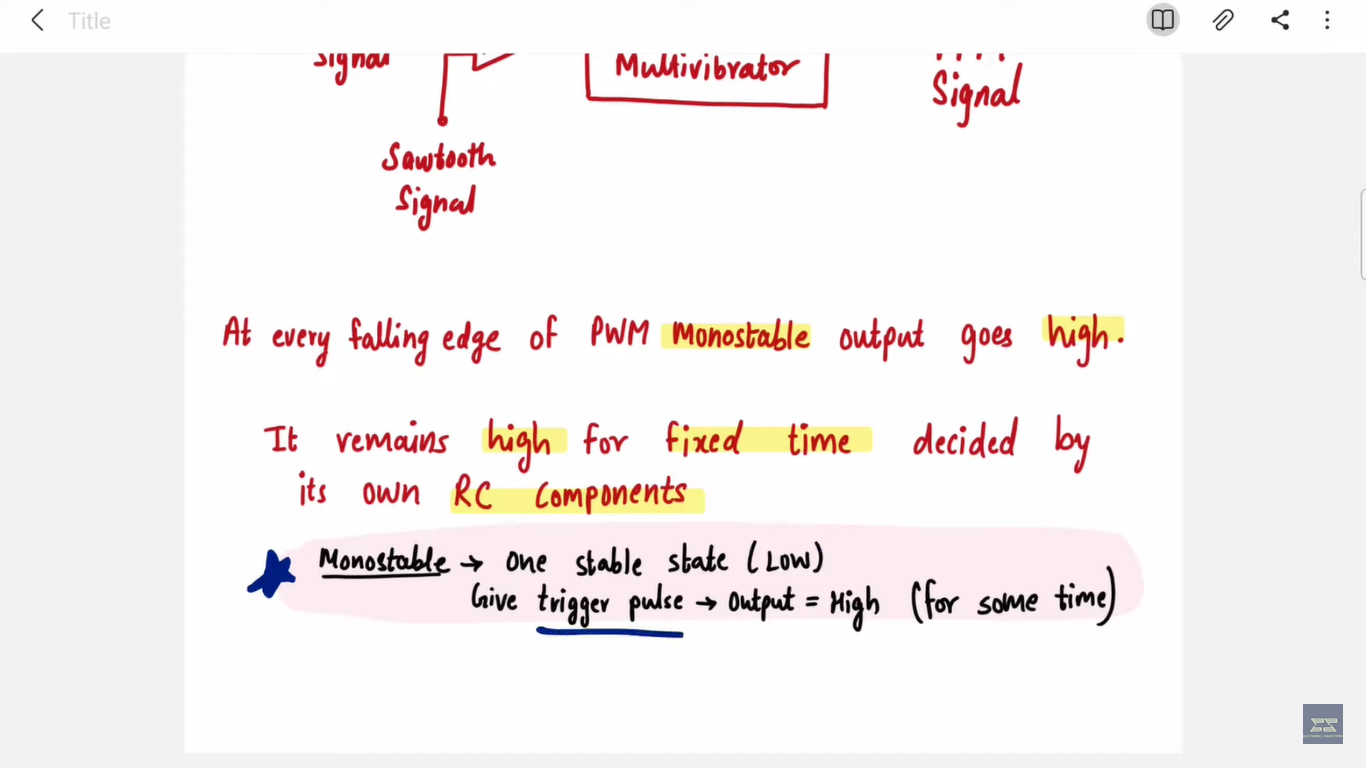 Title
Signal
Multivibrator
Signal
Sawtooth
Signal
At every falling edge of PWM Monostable output goes high.
It remains high for fixed time decided by
its own RC Components
Monostable → One stable state (Low)
Give trigger pulse → Output = High (for some time)